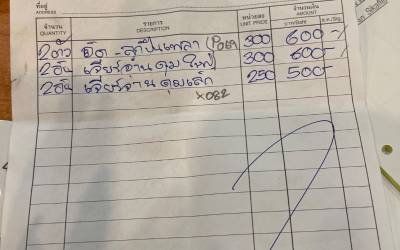 ที่อยู่
ADDRESS
จำนวน รายการ หน่วยละ จำนวนเงิน
QUANTITY DESCRIPTION UNIT PRICE AMOUNT
2ตัว ยึด - ลูกปืนเพลา (P069 300 600-/
2อัน เจียร์จาน ดุมใหญ่ 300 600-/
2อัน เจียร์จาน ดุมเล็ก 250 500-
x082